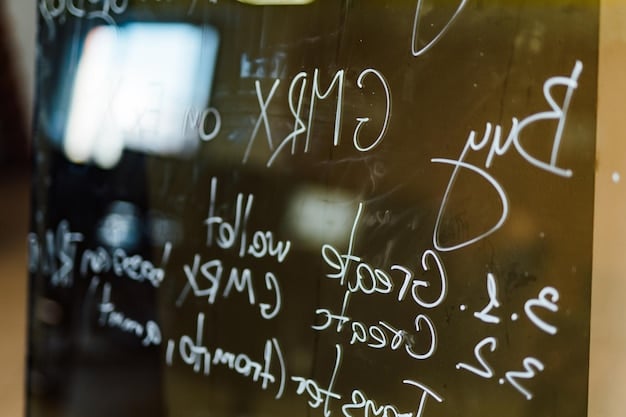 Buy GMRX on
3.1. Create wallet
3.2. Create GMRX based on
Transfer (from, to, amount